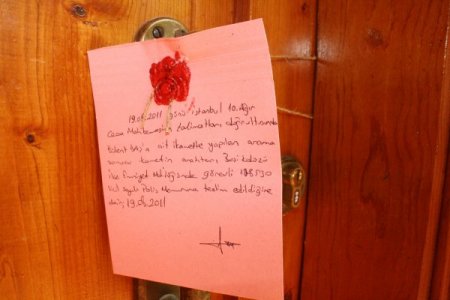 19.08.2011 günü istanbul 10. Ağır
Ceza Mahkemesinin talimatları doğrultusunda
ait ikametke yapılan arama
sonucu konutun anahtarı Beşikdüzü
İlçe Emniyet Müdürlüğünde görevli 198530
sicil sayılı Polis Memuruna teslim edildiğine
dair, 19.08.2011